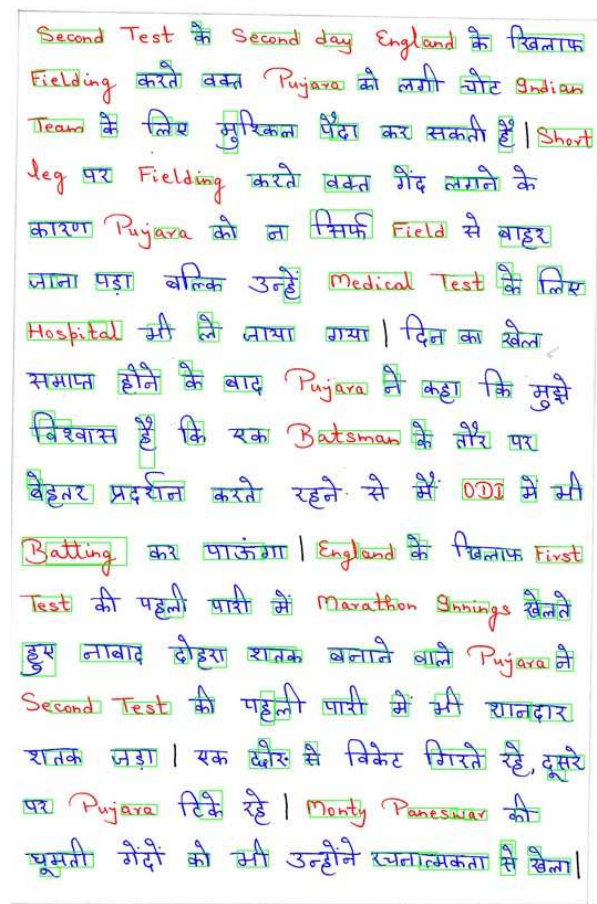 Second Test के Second day England के खिलाफ
Fielding करते वक्त Pujara को लगी चोट Indian
Team के लिए मुश्किल पैदा कर सकती है | Short
leg पर Fielding करते वक्त गेंद लगने के
कारण Pujara को न सिर्फ Field से बाहर
जाना पड़ा बल्कि उन्हें Medical Test के लिए
Hospital भी ले जाया गया | दिन का खेल
समाप्त होने के बाद Pujara ने कहा कि मुझे
विश्वास है कि एक Batsman के तौर पर
बेहतर प्रदर्शन करते रहने से मैं ODI में भी
Batting कर पाऊंगा | England के खिलाफ First
Test की पहली पारी में Marathon Innings खेलते
हुए नाबाद दोहरा शतक बनाने वाले Pujara ने
Second Test की पहली पारी में भी शानदार
शतक जड़ा | एक से विकेट गिरते रहे, दूसरे
पर Pujara टिके रहे | Monty Paneswar की
घूमती गेंदों को भी उन्होंने रचनात्मकता से खेला |